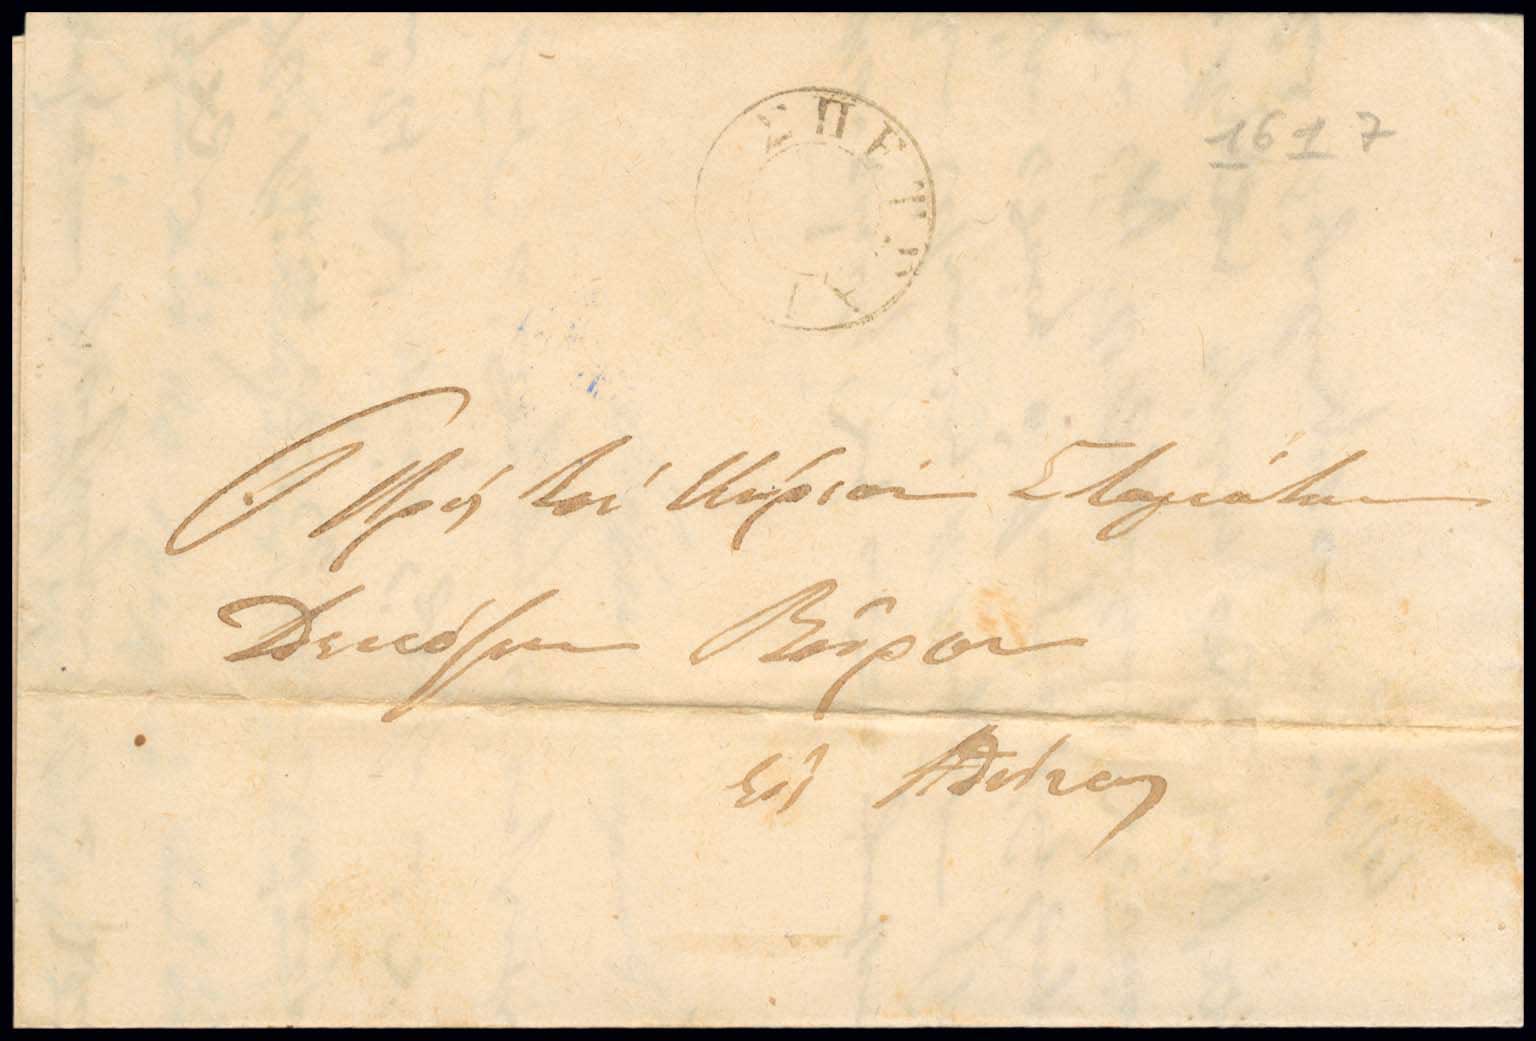 ΣΠΕΤΣΑΙ
1617
Πρός τόν Κύριον Σταμάτιον
Δεκόζην Βοῦρον
εἰς Ἀθήνας